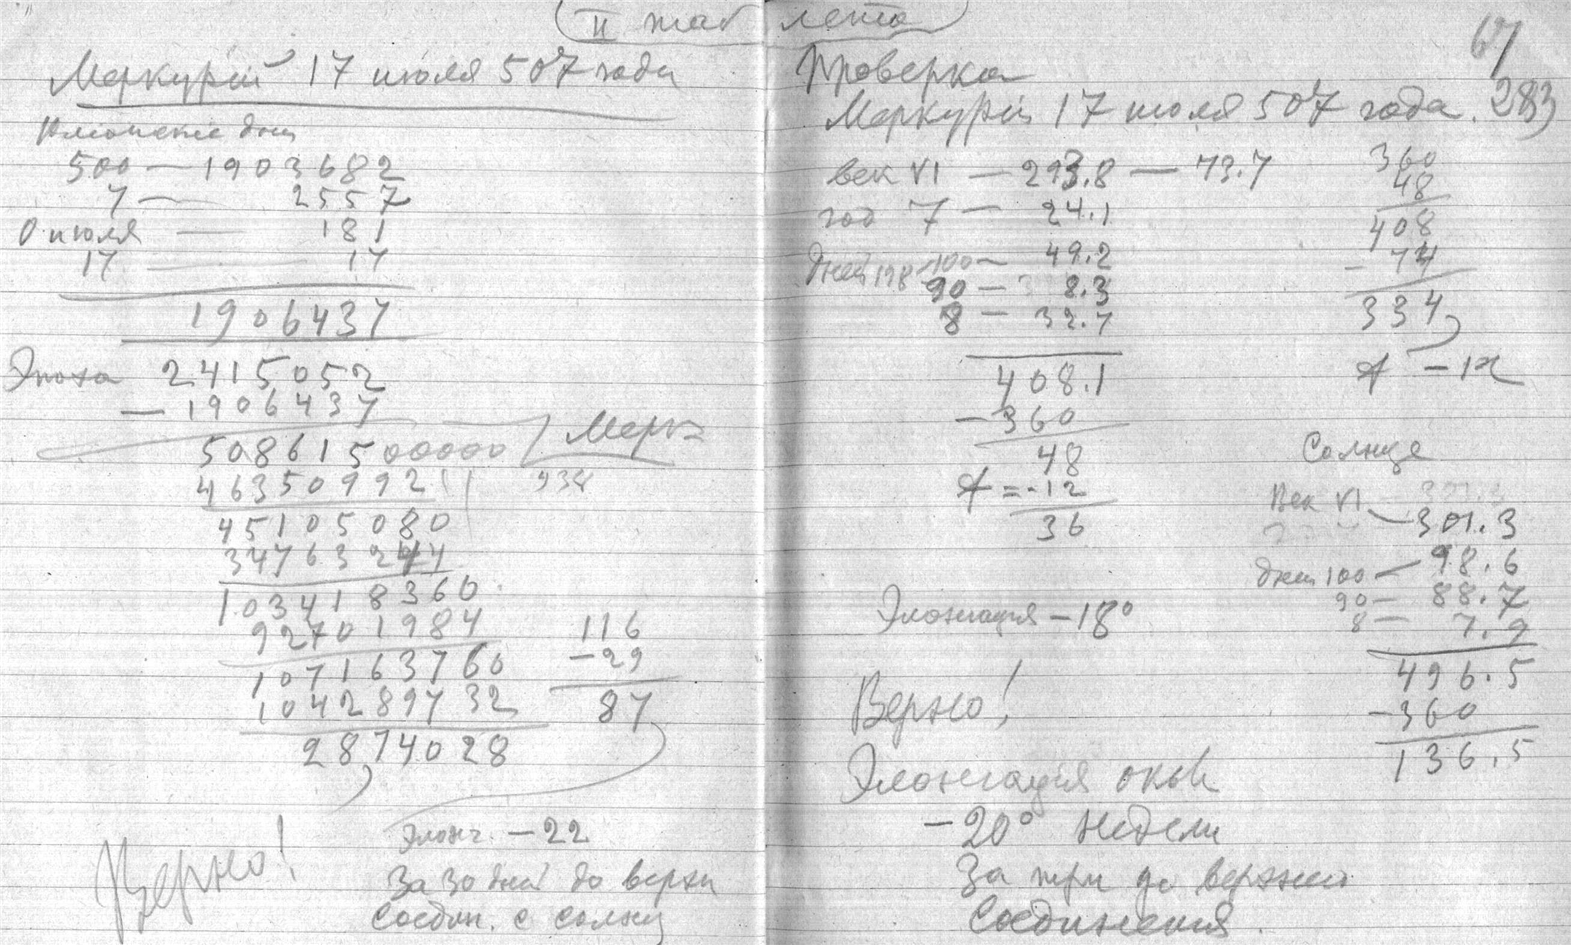 II таб лета
Меркурий 17 июля 507 года
Юлианские дни
500 — 1903682
7 — 2557
0 июля — 181
17 — 17
1906437
Эпоха 2415052
— 1906437
50861500000 Мерк
46350992
45105080
347632
103418360
92701984
1071637760
1042897732
2874028
116
-29
87
Элонг. -22
Верно!
За 30 дней до верхн
соедин. с солнц
67
283
Проверка
Меркурий 17 июля 507 года.
век VI — 293.8 — 73.7
год 7 — 24.1
дней 198 100 — 49.2
90 — 8.3
8 — 32.7
408.1
-360
48
= -12
36
360
48
408
- 74
334
Элонгация -18°
Верно!
Солнце
Век VI — 301.3
дни 100 — 98.6
90 — 88.7
8 — 7.9
496.5
-360
136.5
Элонгация
-20° недели
За три до верхней
соединения.